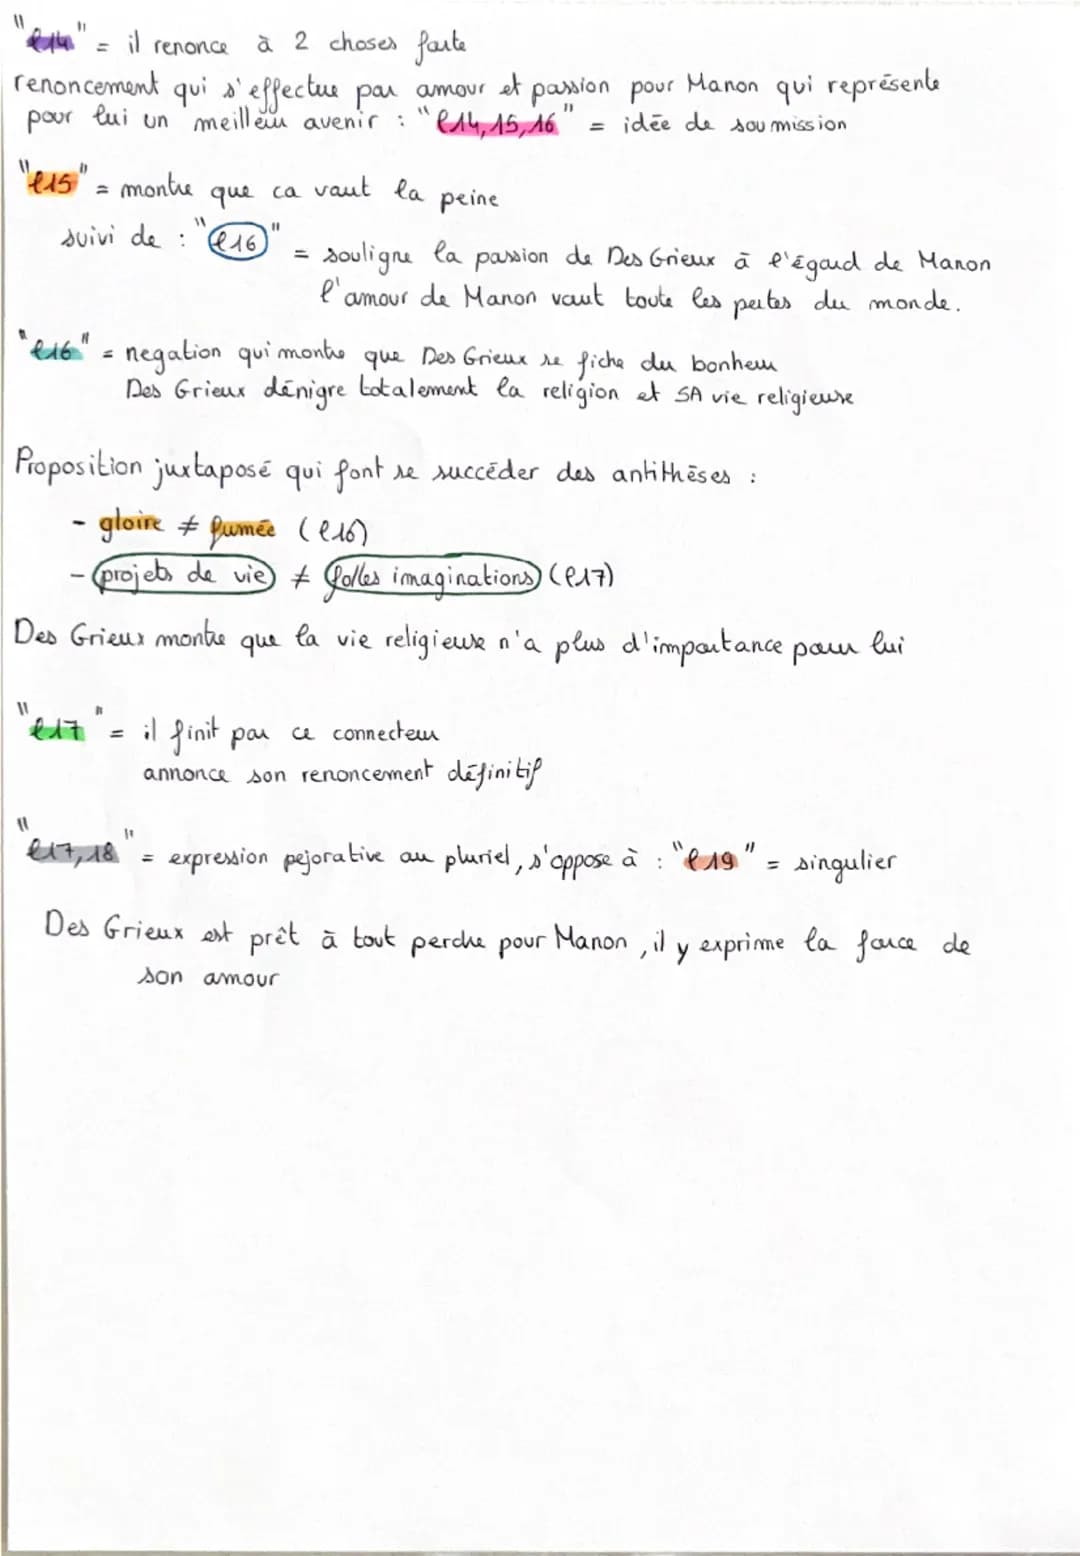 "l14" = il renonce à 2 choses forte
renoncement qui s'effectue par amour et passion pour Manon qui représente
pour lui un meilleur avenir : "l14,15,16" = idée de soumission
"l15" = montre que ca vaut la peine
suivi de : "l16" = souligne la passion de Des Grieux à l'égard de Manon
l'amour de Manon vaut toute les pertes du monde.
"l16" = negation qui montre que Des Grieux se fiche du bonheur
Des Grieux dénigre totalement la religion et SA vie religieuse
Proposition juxtaposé qui font se succéder des antithèses :
- gloire ≠ fumée (l16)
- projets de vie ≠ folles imaginations (l17)
Des Grieux montre que la vie religieuse n'a plus d'importance pour lui
"l17" = il finit par ce connecteur
annonce son renoncement définitif
"l17,18" = expression pejorative au pluriel, s'oppose à : "l19" = singulier
Des Grieux est prêt à tout perdre pour Manon, il y exprime la force de
son amour